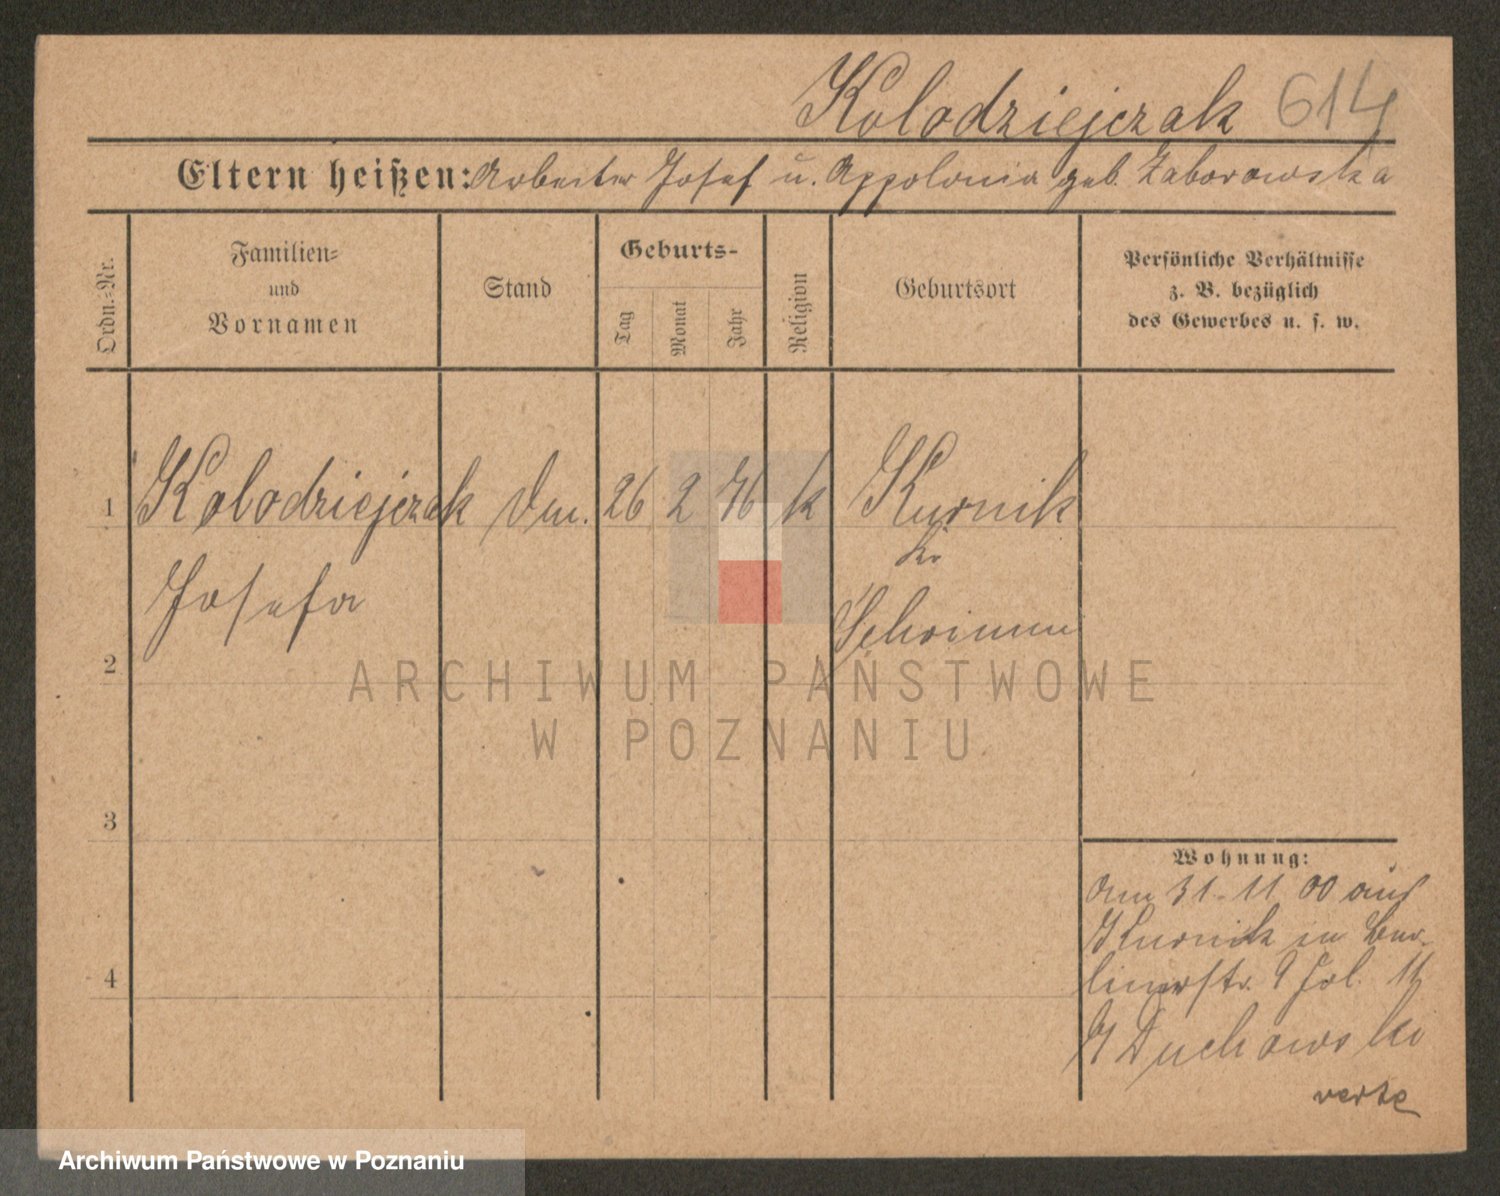 Kolodziejczak 614
Eltern heißen: Arbeiter Josef u. Appolonia geb. Zaborowska
Ordn.-Nr.
Familien-
und
Vornamen
Stand
Geburts-
Tag
Monat
Jahr
Religion
Geburtsort
Persönliche Verhältnisse
z. B. bezüglich
des Gewerbes u. s. w.
1 Kolodziejczak 26 2 76 k Kurnik
Kr
Josefa
Schrimm
2
ARCHIWUM PAŃSTWOWE
W POZNANIU
3
Wohnung:
Am 31. 11 00 aus
Kurnik in Ber-
linerstr. 9
4
Duchowski
verte
Archiwum Państwowe w Poznaniu